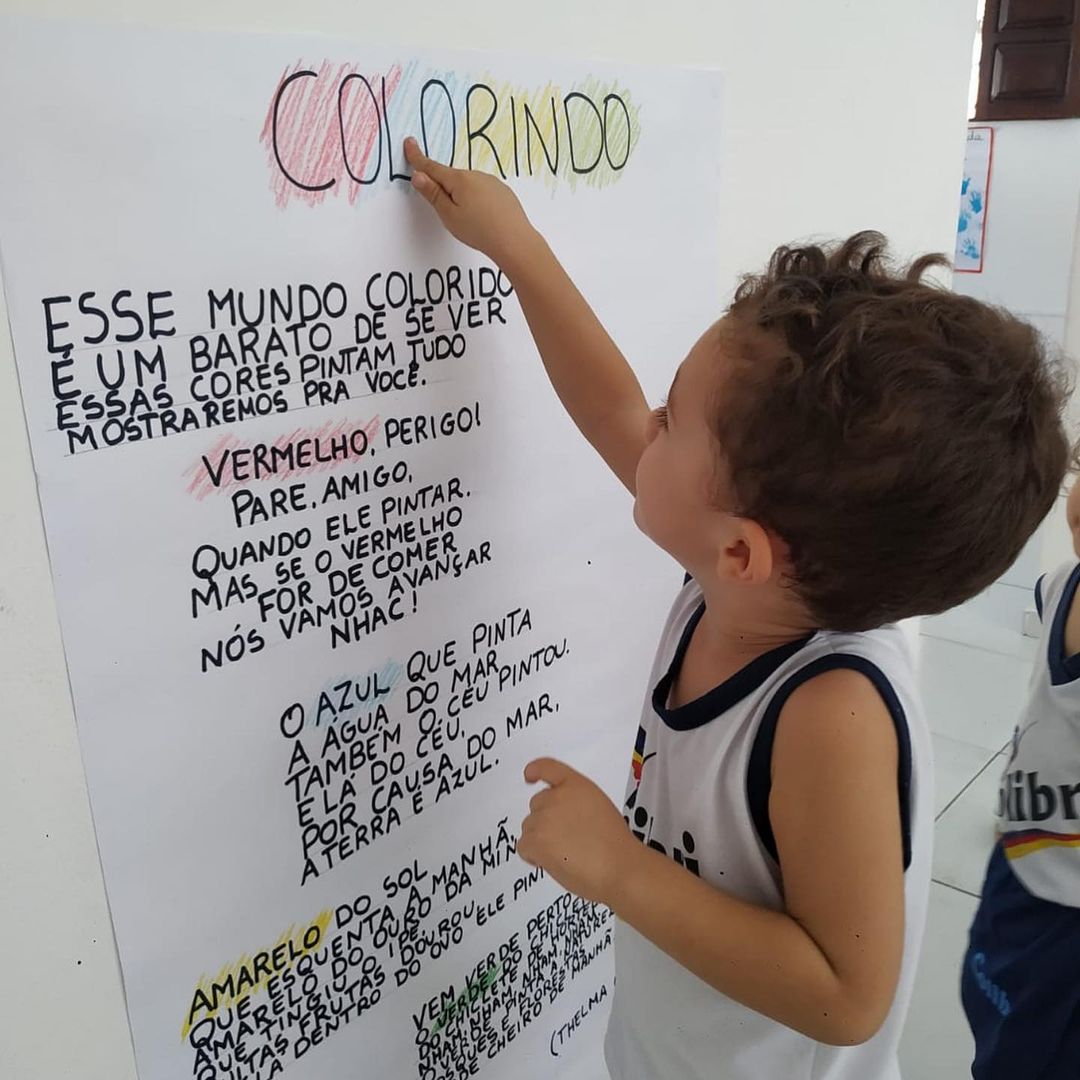 COLORINDO
ESSE MUNDO COLORIDO
É UM BARATO DE SE VER
ESSAS CORES PINTAM TUDO
MOSTRAREMOS PRA VOCÊ.
VERMELHO, PERIGO!
PARE, AMIGO,
QUANDO ELE PINTAR.
MAS SE O VERMELHO
FOR DE COMER
NÓS VAMOS AVANÇAR
NHAC!
O AZUL QUE PINTA
A ÁGUA DO MAR
TAMBÉM O CÉU PINTOU.
E LÁ DO CÉU,
POR CAUSA DO MAR,
A TERRA É AZUL.
AMARELO DO SOL
QUE ESQUENTA A MANHÃ,
AMARELO DO OURO DA
QUE TINGIU O IPÊ
FRUTAS DOUROU
DENTRO DO OVO ELE
VEM VERDE PERTO
O VERDE DO
DO CHICLETE DE HORTELÃ
E FLORES
CHEIRO DE MANHÃ
(THELMA